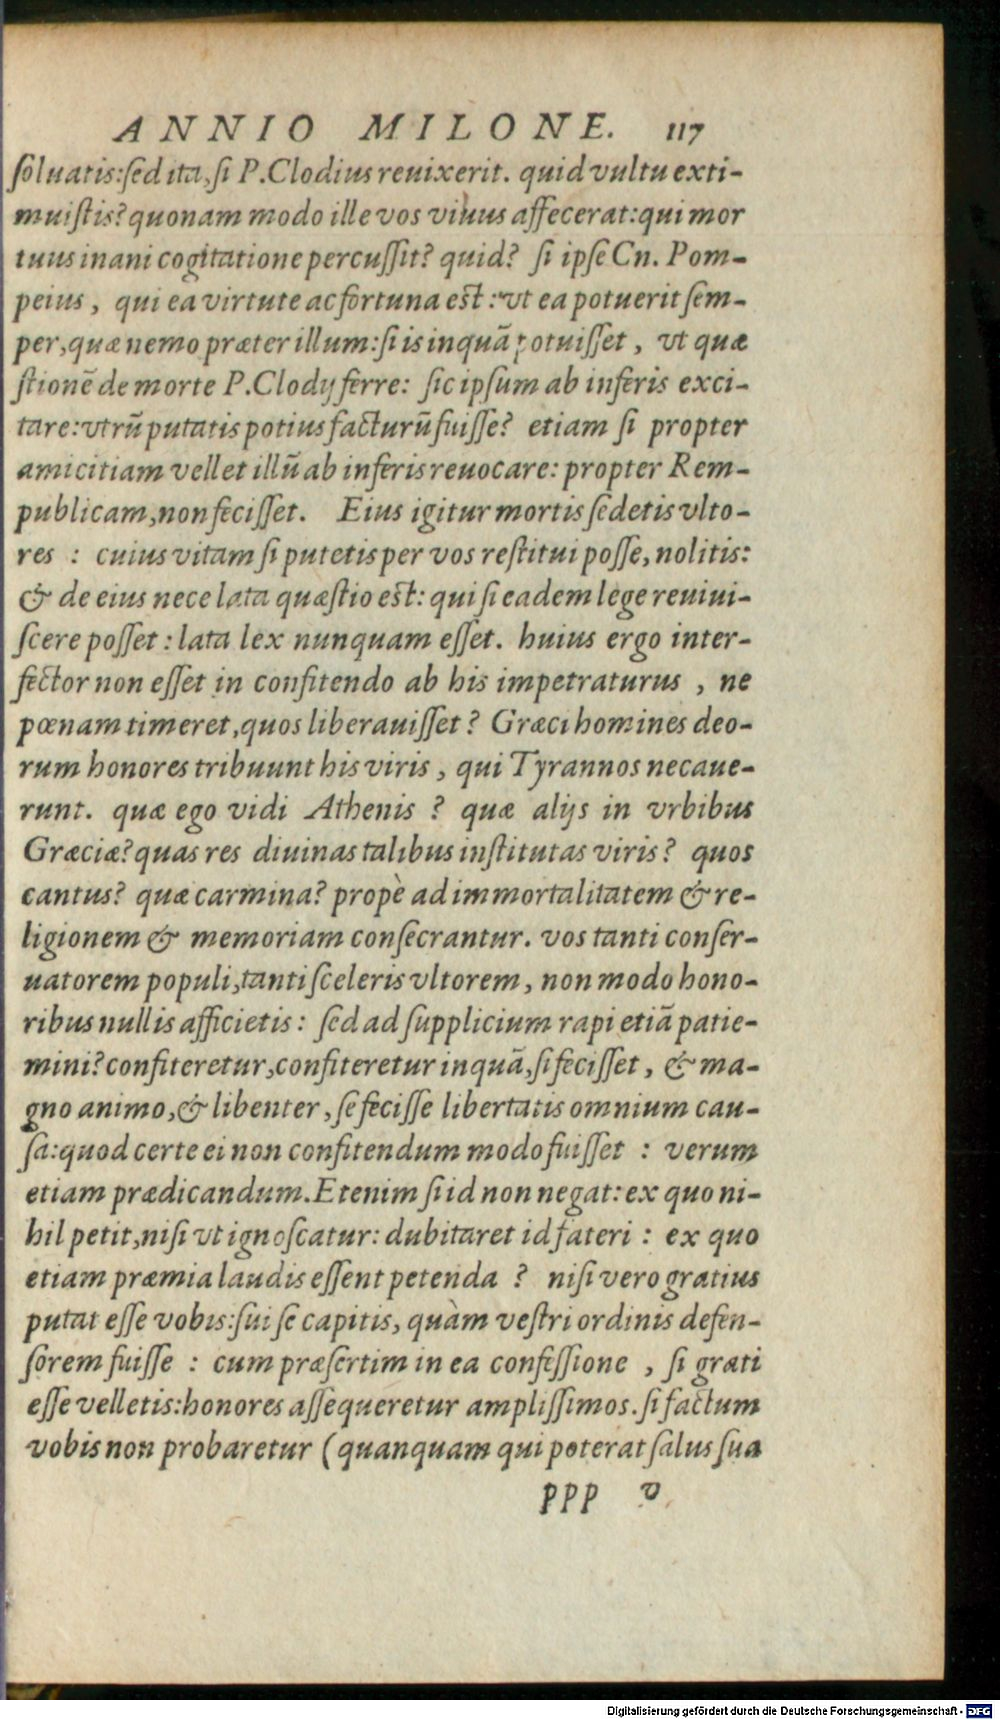 ANNIO MILONE. 117
ſoluatis:ſed ita, ſi P.Clodius reuixerit. quid vultu exti-
muiſtis? quonam modo ille vos viuus affecerat: qui mor
tuus inani cogitatione percuſſit? quid? ſi ipſe Cn. Pom-
peius, qui ea virtute ac fortuna est: vt ea potuerit ſem-
per, quæ nemo præter illum: ſi is inquā potuiſſet, vt quæ
ſtionē de morte P.Clodij ferre: ſic ipſum ab inferis exci-
tare: vtrū putatis potius facturū fuiſſe? etiam ſi propter
amicitiam vellet illū ab inferis reuocare: propter Rem-
publicam, non feciſſet. Eius igitur mortis ſedetis vlto-
res : cuius vitam ſi putetis per vos reſtitui poſſe, nolitis:
& de eius nece lata quæſtio est: qui ſi eadem lege reuiui-
ſcere poſſet: lata lex nunquam eſſet. huius ergo inter-
fector non eſſet in confitendo ab his impetraturus , ne
pœnam timeret, quos liberauiſſet? Græci homines deo-
rum honores tribuunt his viris, qui Tyrannos necaue-
runt. quæ ego vidi Athenis ? quæ alijs in vrbibus
Græciæ? quas res diuinas talibus inſtitutas viris? quos
cantus? quæ carmina? propè ad immortalitatem & re-
ligionem & memoriam conſecrantur. vos tanti conſer-
uatorem populi, tanti ſceleris vltorem, non modo hono-
ribus nullis afficietis: ſed ad ſupplicium rapi etiā patie-
mini? confiteretur, confiteretur inquā, ſi feciſſet, & ma-
gno animo, & libenter, ſe feciſſe libertatis omnium cau-
ſa: quod certe ei non confitendum modo fuiſſet : verum
etiam prædicandum. Etenim ſi id non negat: ex quo ni-
hil petit, niſi vt ignoſcatur: dubitaret id fateri : ex quo
etiam præmia laudis eſſent petenda ? niſi vero gratius
putat eſſe vobis: ſui ſe capitis, quàm veſtri ordinis defen-
ſorem fuiſſe : cum præſertim in ea confeſſione , ſi grati
eſſe velletis: honores aſſequeretur ampliſſimos. ſi factum
vobis non probaretur (quanquam qui poterat ſalus ſua
ppp v
Digitalisierung gefördert durch die Deutsche Forschungsgemeinschaft - DFG